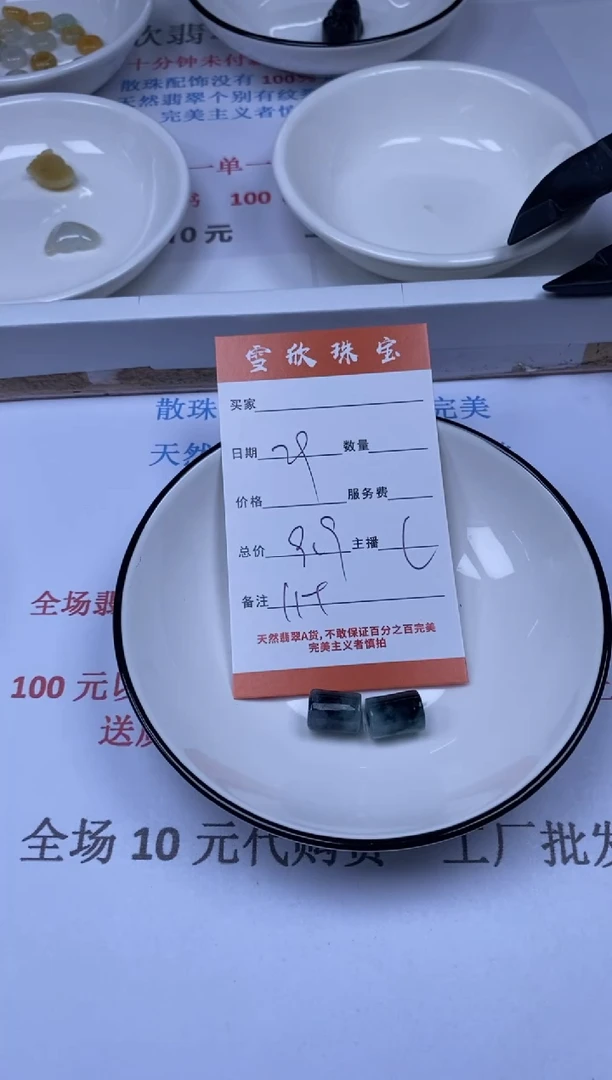 十分钟未付
散珠配饰没有 100%
天然翡翠个别有纹
完美主义者慎
一单一
100
10 元
雪欣珠宝
散珠 完美
买家
天然
日期 29 数量
价格 服务费
总价 主播
备注
天然翡翠A货,不敢保证百分之百完美
完美主义者慎拍
全场翡
100 元以
送
全场 10 元代购费 工厂批发